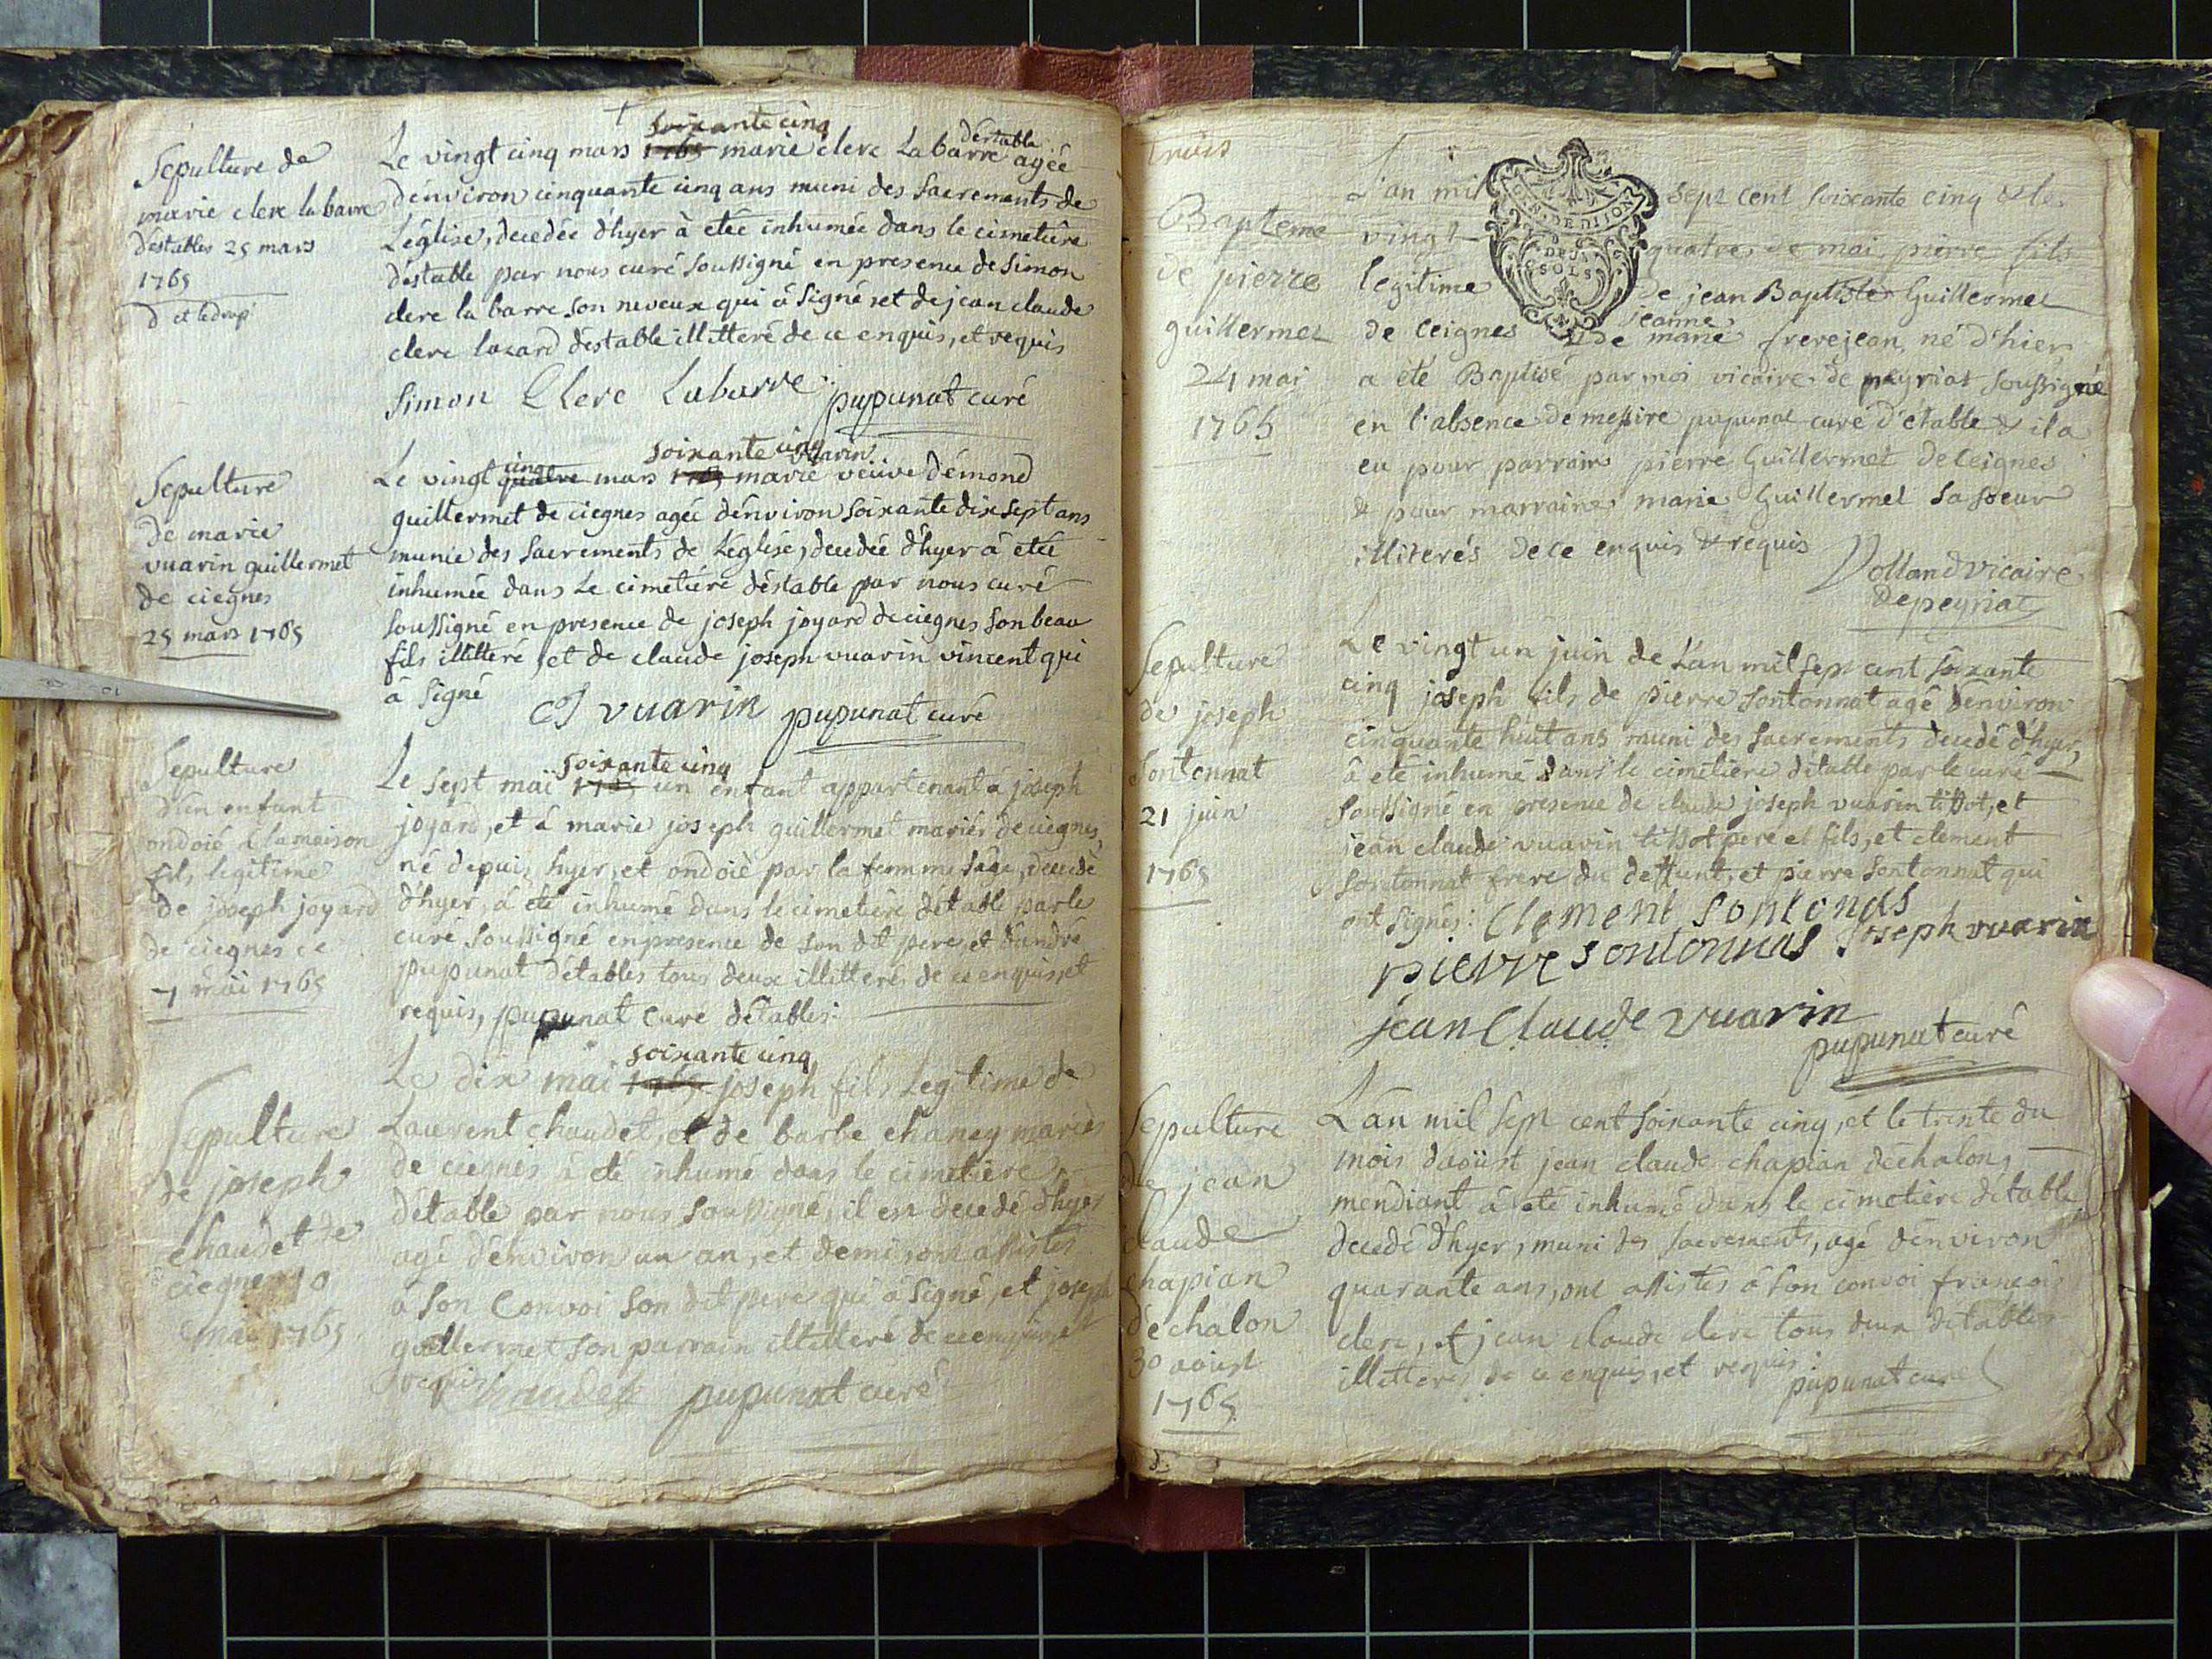 Sepulture de
marie clerc la barre
d'estables 25 mars
1765
soixante cinq
d'estable
Le vingt cinq mars 1765 marie clerc La barre agée
d'environ cinquante cinq ans muni des Sacrements de
L'église, decedée d'hyer à etée inhumée dans le cimetiere
d'estable par nous curé soussigné en presence de Simon
clerc la barre son neveux qui à signé et de jean claude
clerc lazard d'estable illitteré de ce enquis, et requis
Simon Clerc Labarre pupunat curé
Sepulture
de marie
vuarin guillermet
de ciegnes
25 mars 1765
soixante cinq
cinq vuarin
Le vingt quatre mars 1765 marie veüve d'émond
guillermet de ciegnes agée d'environ soixante dix sept ans
munie des Sacrements de L'église, decedée d'hyer à etée
inhumée dans Le cimetiére d'estable par nous curé
soussigné en presence de joseph joyard de ciegnes son beau
fils illitteré, et de claude joseph vuarin vincent qui
à signé
CJ vuarin pupunat curé
Sepulture
d'un enfant
ondoié a la maison
fils legitime
de joseph joyard
de ciegnes ce
7 mäi 1765
soixante cinq
Le sept mäi 1765 un enfant appartenant à joseph
joyard, et à marie joseph guillermet mariés de ciegnes,
né depuis hyer, et ondoié par la femme sage, decedé
d'hyer, à eté inhumé dans le cimetiere d'etable par le
curé soussigné en presence de son dit pere, et d'andré
pupunat d'etables tous deux illitterés de ce enquis, et
requis, pupunat Curé d'etables:
Sepulture
de joseph
chaudet de
ciegnes 10
mai 1765
soixante cinq
Le dix mai 1765 joseph fils Legitime de
Laurent chaudet, et de barbe chaney mariés
de ciegnes à eté inhumé dans le cimetiere
d'etable par nous soussigné, il est decedé d'hyer
agé d'environ un an, et demi, ont assistés
à son Convoi son dit pere qui à signé, et joseph
guillermet son parrain illitteré de ce enquis, et
requis chaudet pupunat curé
trois
Bapteme
de pierre
guillermet
24 mai
1765
GEN. DE DIJON
DEUX
SOLS
L'an mil sept cent soixante cinq & le
vingt quatre de mai pierre fils
legitime de jean Baptiste Guillermet
jeanne
de Ceignes & de marie frerejean, né d'hier
a été Baptisé par moi vicaire de peyriat soussigné
en l'absence de messire pupunat curé d'étable & il a
eu pour parrain pierre Guillermet de Ceignes
& pour marraine marie Guillermet sa soeur
illiterés de ce enquis & requis
Volland vicaire
de peyriat
Sepulture
de joseph
sontonnat
21 juin
1765
Le vingt un juin de L'an mil sept cent soixante
cinq joseph fils de pierre sontonnat agé d'environ
cinquante huit ans muni des sacrements decedé d'hyer,
à eté inhumé dans le cimetiere d'etable par le curé
soussigné en presence de claude joseph vuarin tissot, et
jean claude vuarin tissot pere et fils, et clement
sontonnat frere du deffunt, et pierre sontonnat qui
ont signés: Clement sontonas
joseph vuarin
pierre sontonnas
jean Claude vuarin
pupunat curé
Sepulture
de jean
claude
chapian
de chalon
30 aoust
1765
L'an mil sept cent soixante cinq, et le trente du
mois d'aoüst jean claude chapian d'échalon,
mendiant à eté inhumé dans le cimetière d'etable
decedé d'hyer, muni des sacrements, agé d'environ
quarante ans, ont assistés à son convoi francois
clerc, & jean claude clerc tous deux d'etables
illitterés de ce enquis, et requis
pupunat curé